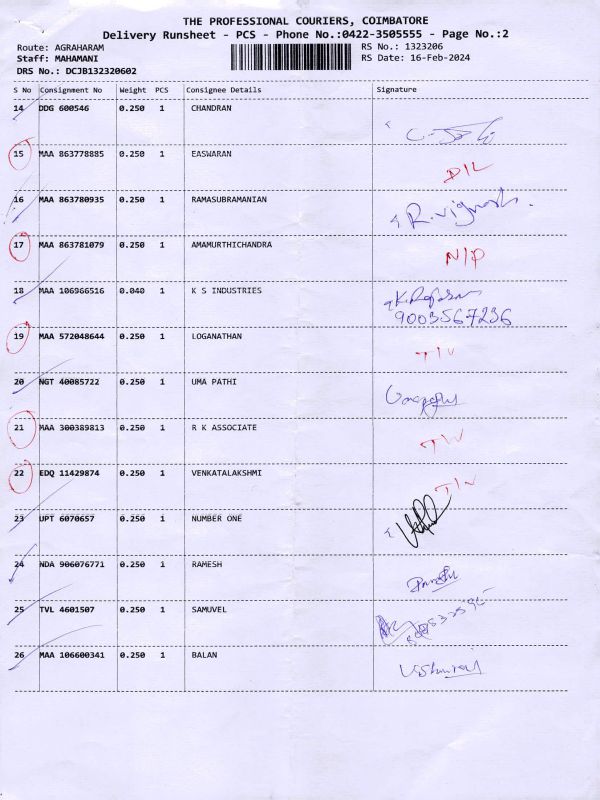 THE PROFESSIONAL COURIERS, COIMBATORE
Delivery Runsheet - PCS - Phone No.:0422-3505555 - Page No.:2
Route: AGRAHARAM RS No.: 1323206
Staff: MAHAMANI RS Date: 16-Feb-2024
DRS No.: DCJB132320602
S No Consignment No Weight PCS Consignee Details Signature
14 DDG 600546 0.250 1 CHANDRAN
15 MAA 863778885 0.250 1 EASWARAN D/L
16 MAA 863780935 0.250 1 RAMASUBRAMANIAN R. Vignesh.
17 MAA 863781079 0.250 1 AMAMURTHICHANDRA N/P
18 MAA 106966516 0.040 1 K S INDUSTRIES
9003567236
19 MAA 572048644 0.250 1 LOGANATHAN
20 NGT 40085722 0.250 1 UMA PATHI
21 MAA 300389813 0.250 1 R K ASSOCIATE
22 EDQ 11429874 0.250 1 VENKATALAKSHMI
23 UPT 6070657 0.250 1 NUMBER ONE
24 NDA 906076771 1 RAMESH
25 TVL 4601507 0.250 1 SAMUVEL
26 MAA 106600341 0.250 1 BALAN